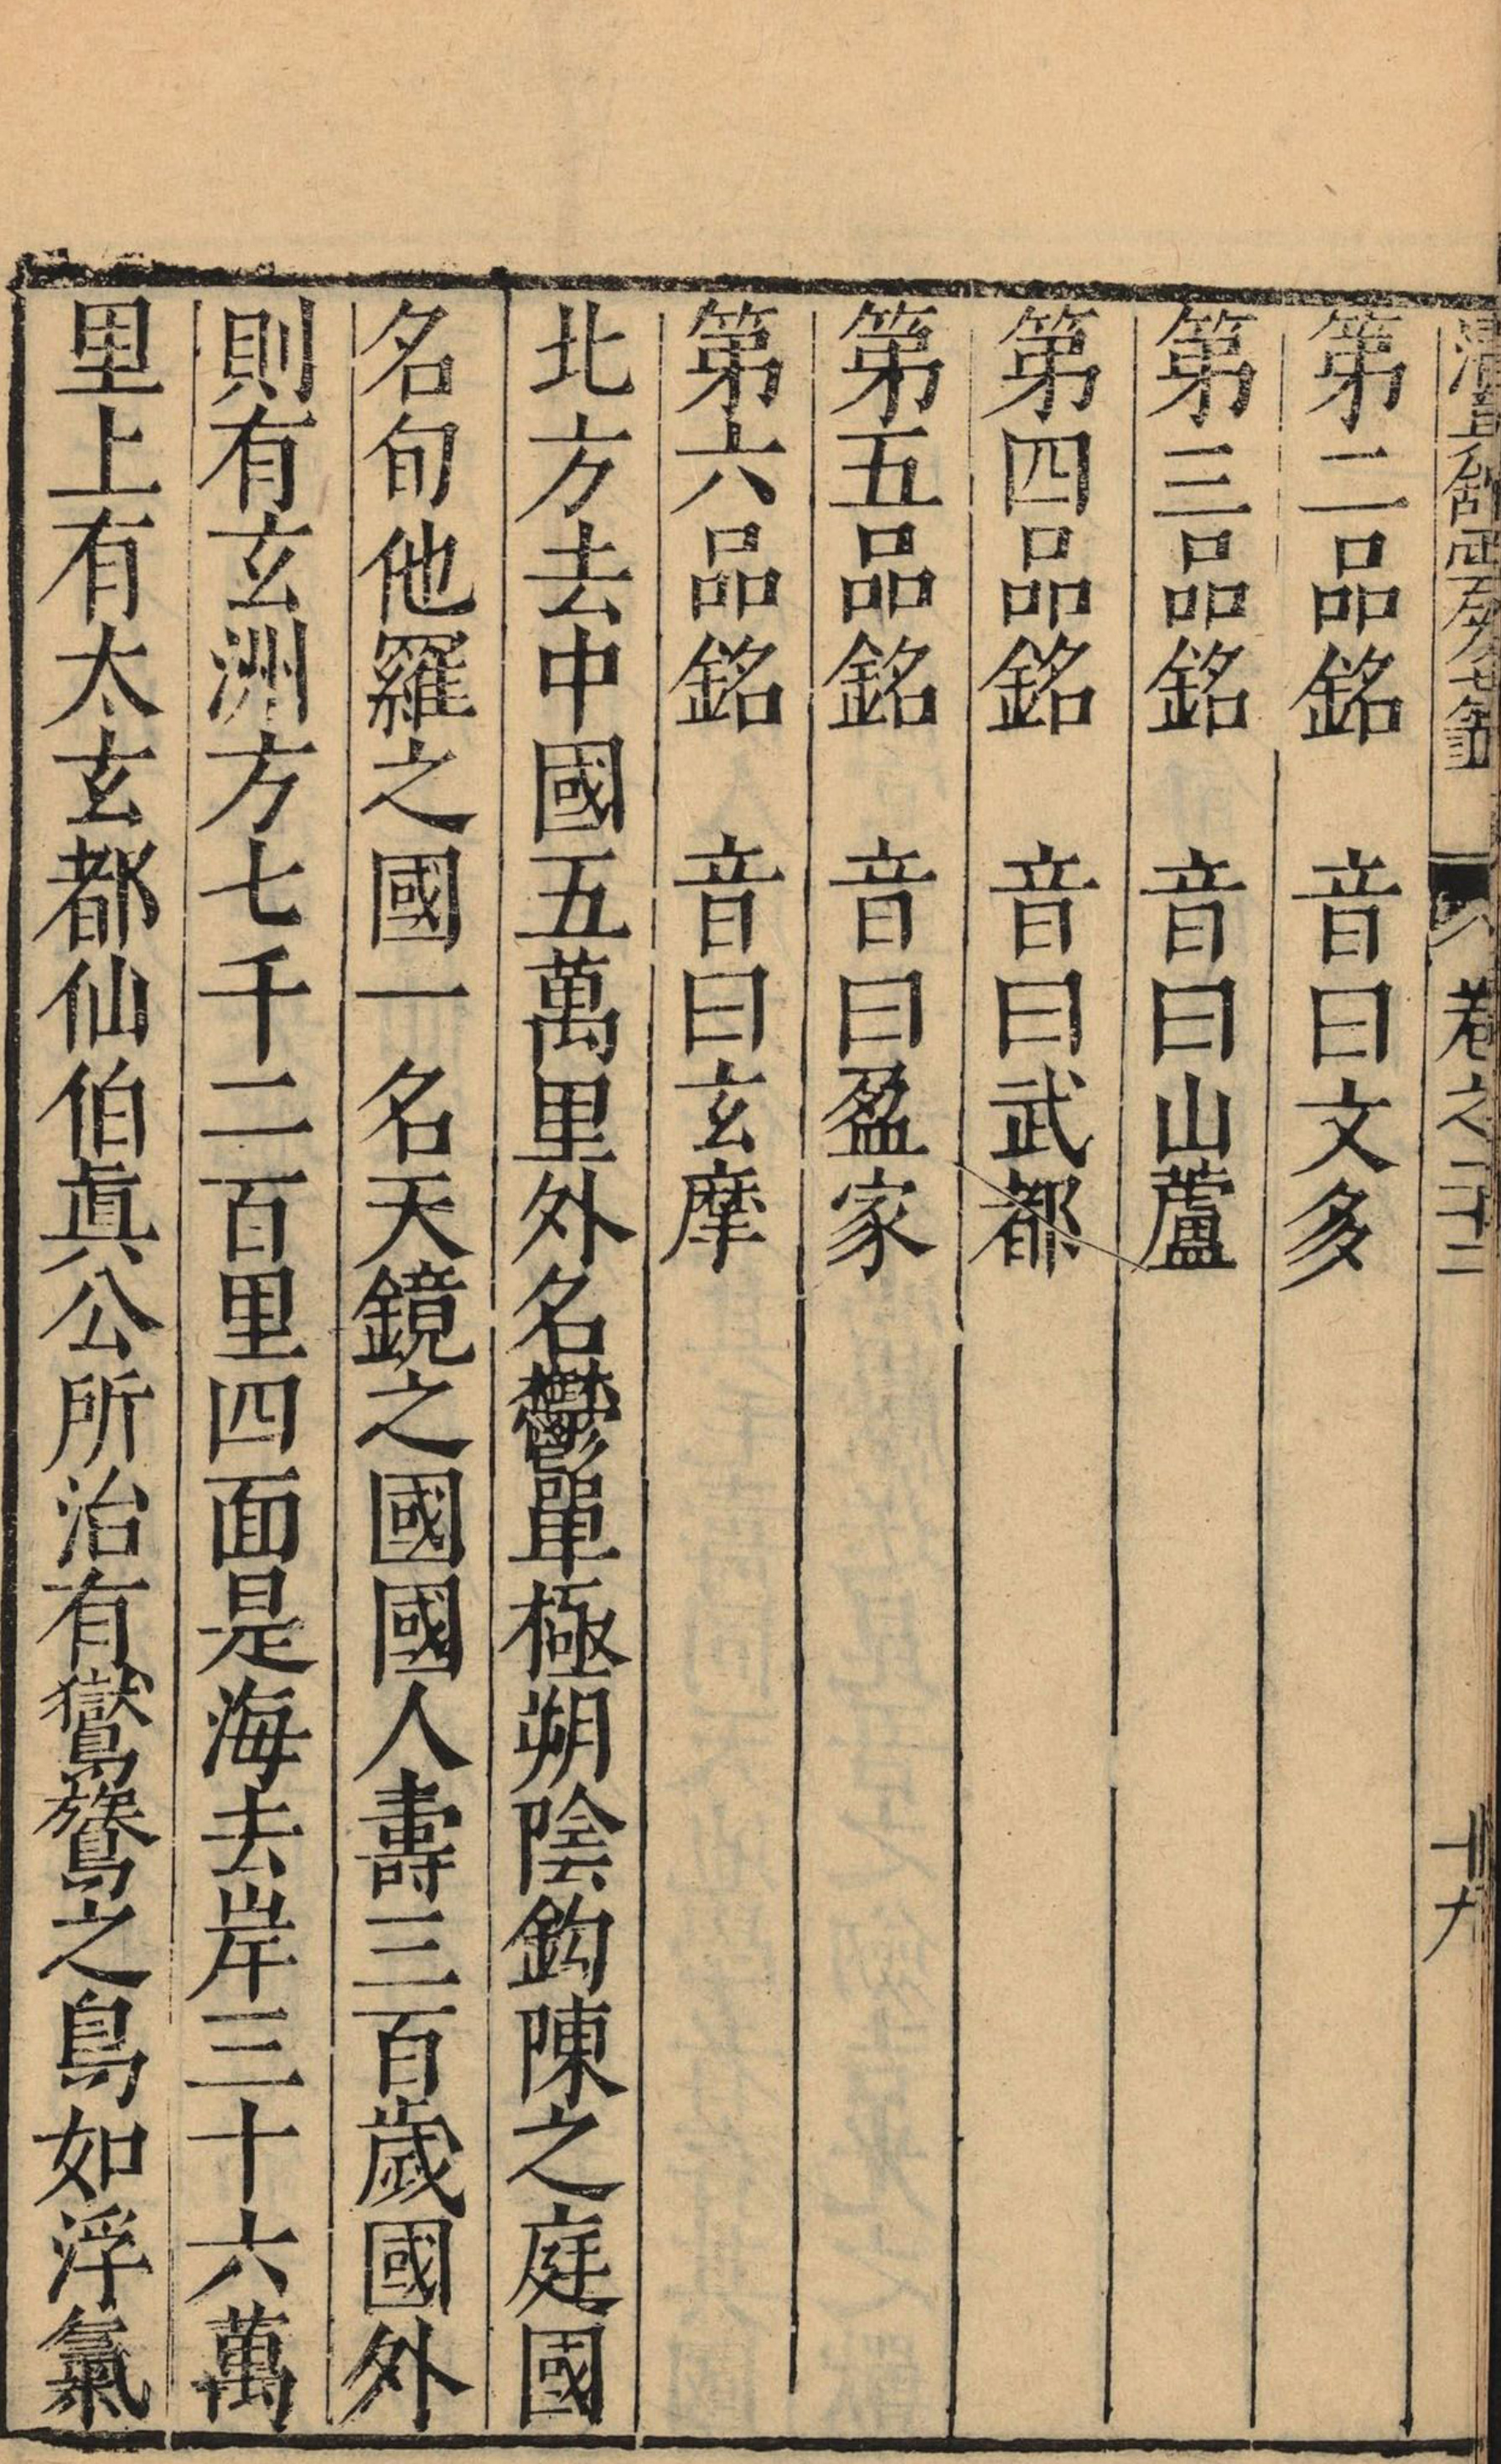 清真舘雲笈七籤 卷之二十二
第二品銘 音曰文多
第三品銘 音曰山蘆
第四品銘 音曰武都
第五品銘 音曰盈家
第六品銘 音曰玄摩
北方去中國五萬里外名鬱單極朔陰鈎陳之庭國
名旬他羅之國一名天鏡之國國人壽三百歲國外
則有玄洲方七千二百里四面是海去岸三十六萬
里上有太玄都仙伯眞公所治有鸑鷟之鳥如浮氣